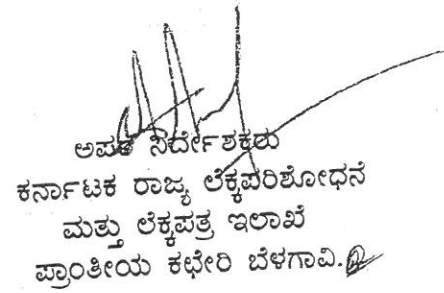 ಅಪರ ನಿರ್ದೇಶಕರು
ಕರ್ನಾಟಕ ರಾಜ್ಯ ಲೆಕ್ಕಪರಿಶೋಧನೆ
ಮತ್ತು ಲೆಕ್ಕಪತ್ರ ಇಲಾಖೆ
ಪ್ರಾಂತೀಯ ಕಛೇರಿ ಬೆಳಗಾವಿ.